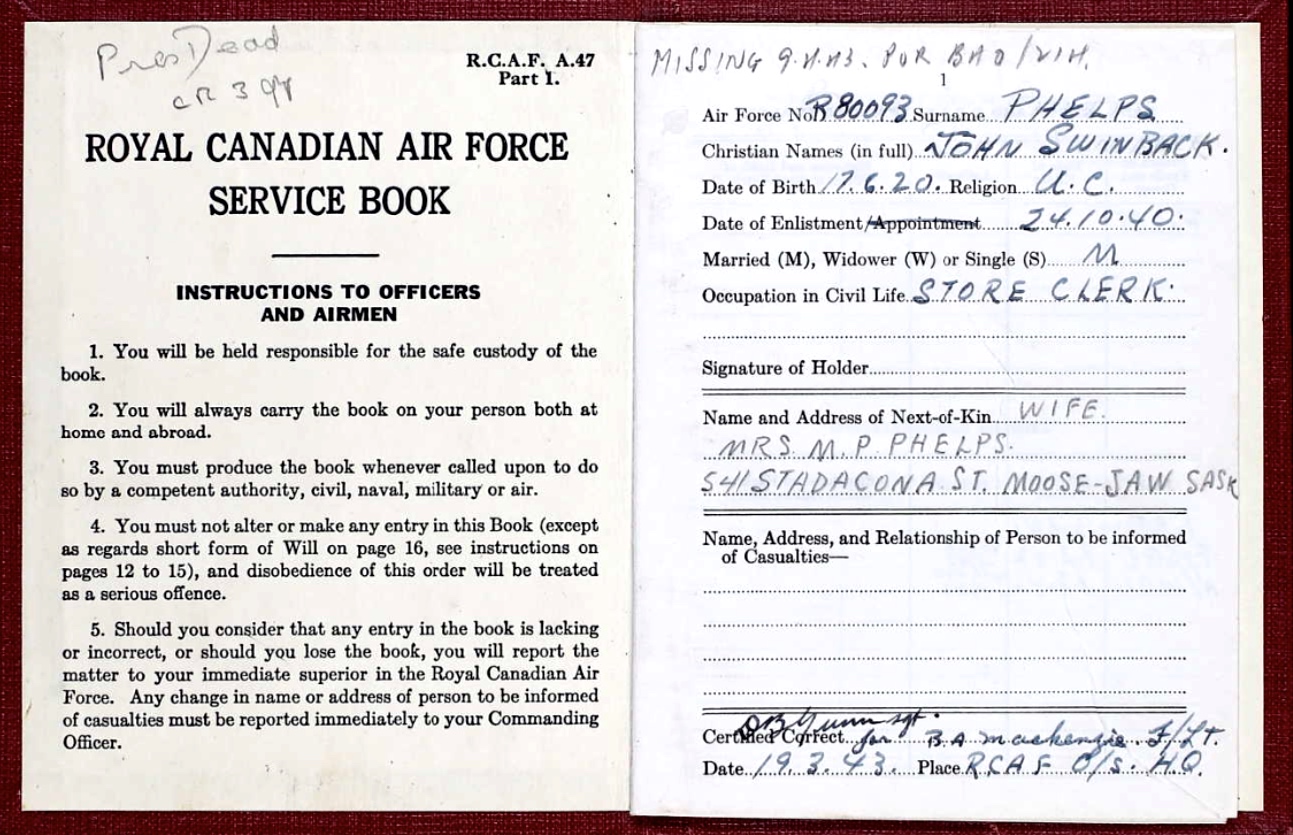 Pres Dead
CR 394
R.C.A.F. A.47
Part I.
ROYAL CANADIAN AIR FORCE
SERVICE BOOK
INSTRUCTIONS TO OFFICERS
AND AIRMEN
1. You will be held responsible for the safe custody of the
book.
2. You will always carry the book on your person both at
home and abroad.
3. You must produce the book whenever called upon to do
so by a competent authority, civil, naval, military or air.
4. You must not alter or make any entry in this Book (except
as regards short form of Will on page 16, see instructions on
pages 12 to 15), and disobedience of this order will be treated
as a serious offence.
5. Should you consider that any entry in the book is lacking
or incorrect, or should you lose the book, you will report the
matter to your immediate superior in the Royal Canadian Air
Force. Any change in name or address of person to be informed
of casualties must be reported immediately to your Commanding
Officer.
MISSING 9.4.43. POR BAO/
1
Air Force No. R80093 Surname PHELPS
Christian Names (in full) JOHN SWINBACK.
Date of Birth 17.6.20. Religion U.C.
Date of Enlistment/Appointment 24.10.40.
Married (M), Widower (W) or Single (S) M
Occupation in Civil Life STORE CLERK.
Signature of Holder
Name and Address of Next-of-Kin WIFE.
MRS. M. P. PHELPS.
541 STADACONA ST. MOOSE-JAW SASK
Name, Address, and Relationship of Person to be informed
of Casualties—
DB Gunn sgt.
Certified Correct for B A Mackenzie F/Lt.
Date 19.3.43. Place R.C.A.F. O/S. HQ.